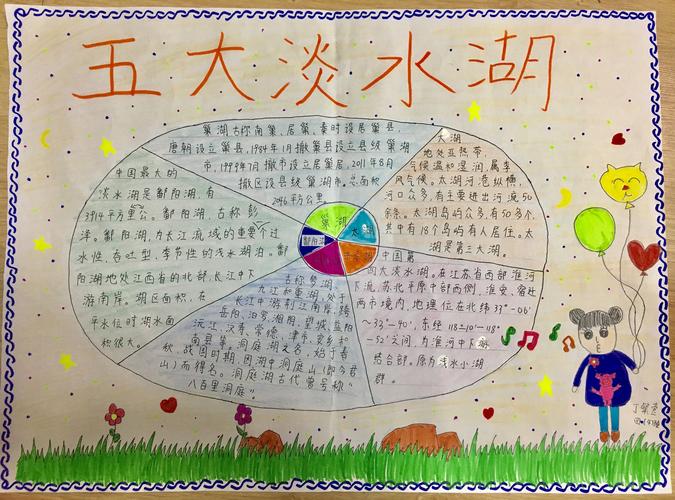 五大淡水湖
巢湖古称南巢、居巢、秦时设居巢县,
唐朝设立巢县,1984年1月撤巢县设立县级巢湖
市,1999年7月撤市设立居巢区,2011年8月
撤区设县级巢湖市。总面积
2046平方公里。
太湖
地处亚热带,
气候温和湿润,属季
风气候。太湖河港纵横,
河口众多,有主要进出河流50
余条。太湖岛屿众多,有50多个,
其中有18个岛屿有人居住。太
湖是第三大湖。
中国最大的
淡水湖是鄱阳湖,有
3914平方里公。鄱阳湖,古称彭
泽。鄱阳湖,为长江流域的重要个过
水性、吞吐型、季节性的浅水湖泊。鄱
阳湖地处江西省的北部,长江中下
游南岸。湖区面积,在
平水位时湖水面
积很大。
巢湖
太湖
鄱阳湖
中国第
四大淡水湖。在江苏省西部淮河
下流,苏北平原中部西侧,淮安、宿迁
两市境内,地理位在北纬33°-06′
~33°-40′,东经118-10′-118°
-52′之间,为淮河中下游
结合部。原为浅水小湖
群。
古称
九江和重湖,处于
长江中游荆江南岸,跨
岳阳、汨罗、湘阴、望城、益阳
沅江、汉寿、常德、津市、安乡和
南县等。洞庭湖之名,始于春
秋、战国时期,因湖中洞庭山(即今君
山)而得名。洞庭湖古代曾号称“
八百里洞庭”。